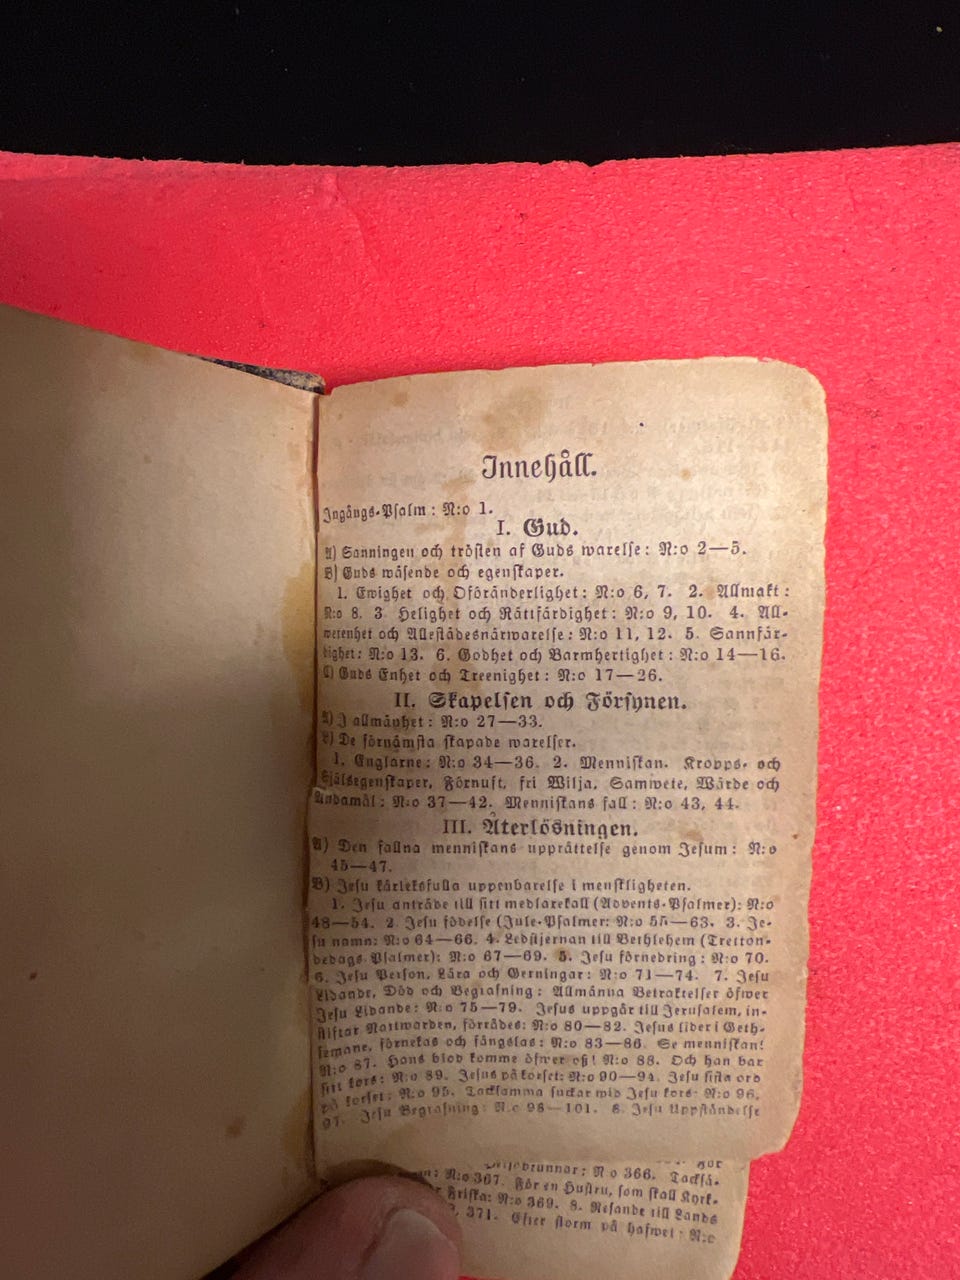 Innehåll.
Ingångs-Psalm: N:o 1.
I. Gud.
A) Sanningen och trösten af Guds warelse: N:o 2—5.
B) Guds wäsende och egenskaper.
1. Ewighet och Oföränderlighet: N:o 6, 7. 2. Allmakt:
N:o 8. 3 Helighet och Rättfärdighet: N:o 9, 10. 4. All-
wetenhet och Allestädesnärwarelse: N:o 11, 12. 5. Sannfär-
dighet: N:o 13. 6. Godhet och Barmhertighet: N:o 14—16.
C) Guds Enhet och Treenighet: N:o 17—26.
II. Skapelsen och Försynen.
A) I allmänhet: N:o 27—33.
B) De förnämsta skapade warelser.
1. Englarne: N:o 34—36. 2. Menniskan. Kropps- och
Själsegenskaper, Förnuft, fri Wilja, Samwete, Wärde och
Ändamål: N:o 37—42. Menniskans fall: N:o 43, 44.
III. Återlösningen.
A) Den fallna menniskans upprättelse genom Jesum: N:o
45—47.
B) Jesu kärleksfulla uppenbarelse i menskligheten.
1. Jesu anträde till sitt medlarekall (Advents-Psalmer): N:o
48—54. 2. Jesu födelse (Jule-Psalmer: N:o 55—63. 3. Je-
su namn: N:o 64—66. 4. Ledstjernan till Bethlehem (Tretton-
dedags Psalmer): N:o 67—69. 5. Jesu förnedring: N:o 70.
6. Jesu Person, Lära och Gerningar: N:o 71—74. 7. Jesu
Lidande, Död och Begrafning: Allmänna Betraktelser öfwer
Jesu Lidande: N:o 75—79. Jesus uppgår till Jerusalem, in-
stiftar Nattwarden, förrådes: N:o 80—82. Jesus lider i Geth-
semane, förnekas och fångslas: N:o 83—86. Se menniskan!
N:o 87. Hans blod komme öfwer oß! N:o 88. Och han bar
sitt kors: N:o 89. Jesus på korset: N:o 90—94. Jesu sista ord
på korset: N:o 95. Tacksamma suckar wid Jesu kors: N:o 96,
97. Jesu Begrafning: N:o 98—101. 8. Jesu Uppståndelse
brunnar: N o 366. Tacksä-
N:o 367. För en Hustru, som skall Kyrk-
Friska: N:o 369. 8. Resande till Lands
371. Efter storm på hafwet: N:o